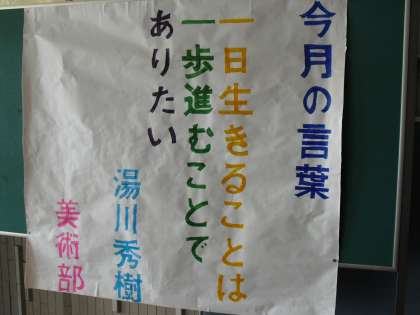 今月の言葉
一日生きることは
一歩進むことで
ありたい
湯川秀樹
美術部